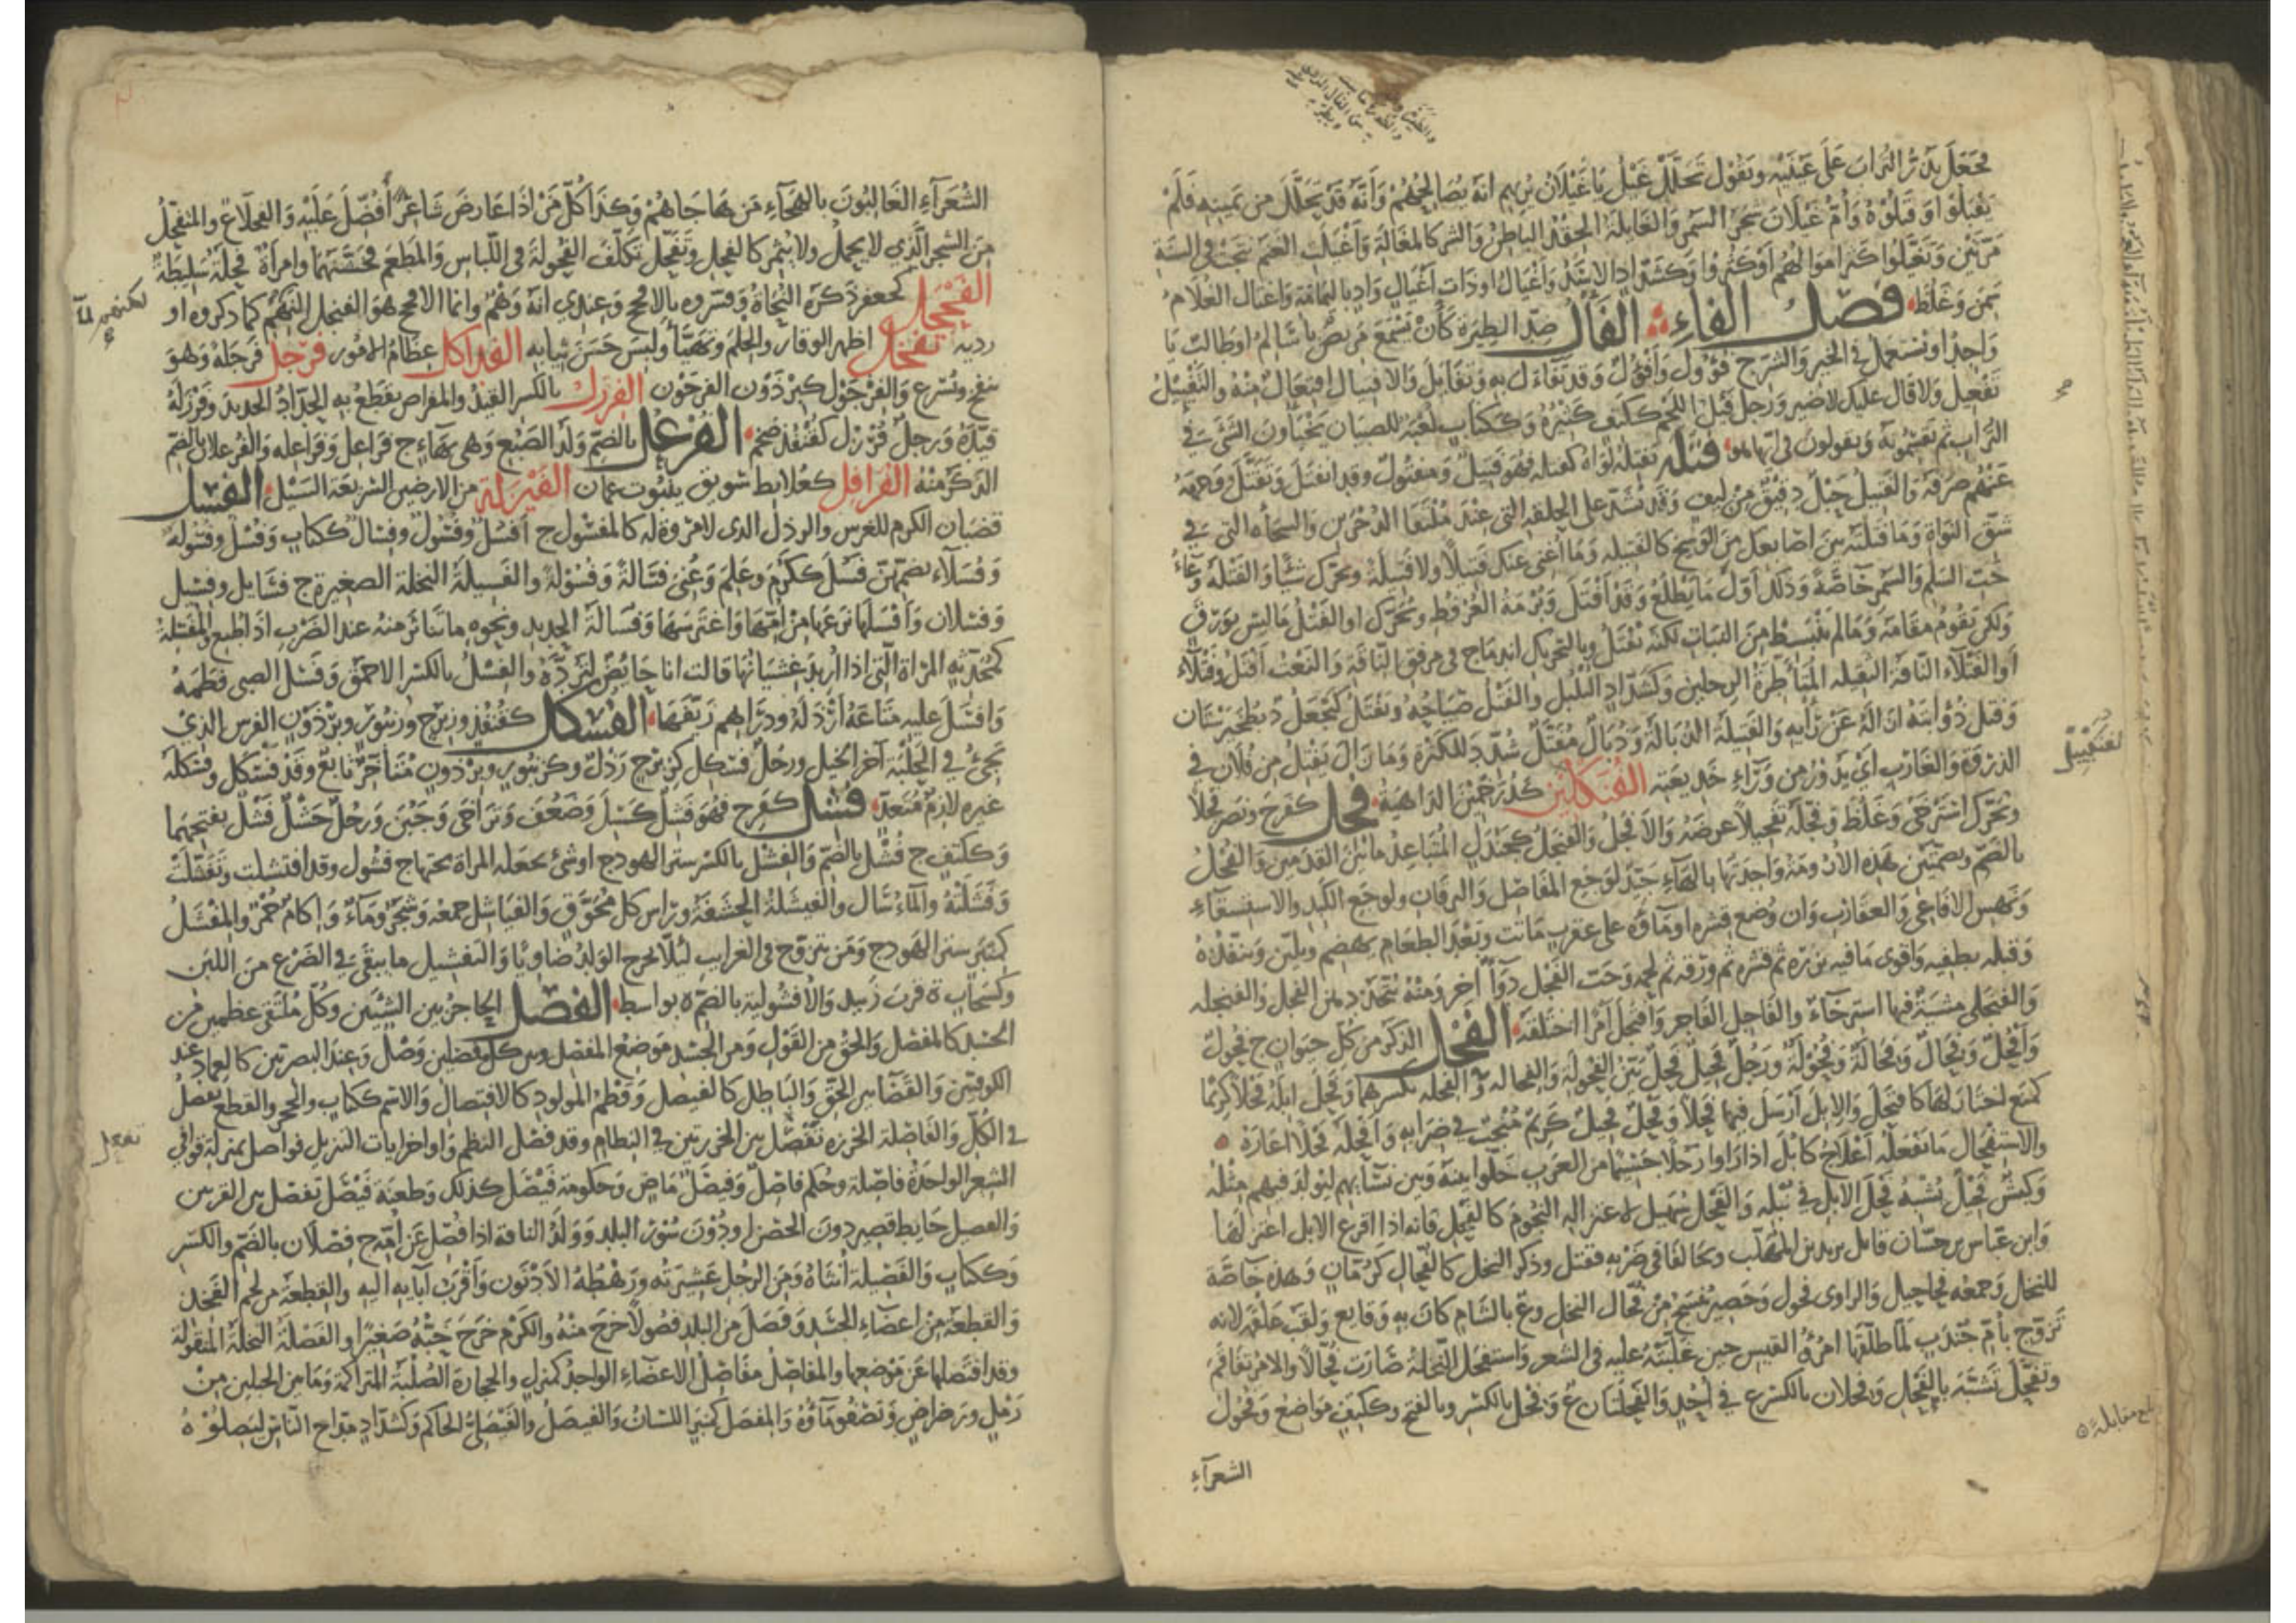 فجعل يذر التراب على عينيه ويقول تحلل غيل يا غيلان يريهم انه يصالحهم وانه قد تحلل من يمينه فلم
يقبلوا وقتلوه وأم غيلان شجر السمر والغايلة الحقد الباطن والشر كالمغالة وأغيلت الغنم نتجت في السنة
مرتين وتغيلوا كثر اموالهم او كثروا وكشداد الاسد واغيال او ذات أغيال واد باليمامة واغتال الغلام
سمن وغلظ فصل الفاء الفأل ضد الطيرة كأن يسمع مريض يا سالم او طالب يا
واجد او يستعمل في الخير والشر ج فؤول وأفؤل وقد تفاءل به وتفأل والافتيال افتعال منه والتفييل
تفعيل ولا فال عليك لا ضير ورجل فيل اللحم ككتف كثيره وككتاب لعبة للصبيان يخبأون الشيء في
التراب ثم يقسمونه ويقولون في ايها هو فتله يفتله لواه كفتله فهو فتيل ومفتول وقد انفتل وتفتل ووجهه
عنهم صرفه والفتيل حبل دقيق من ليف وقد يشد على الحلقة التي عند ملتقى الدجرين والسحاة التي في
شق النواة وما فتلته بين اصابعك من الوسخ كالفتيلة وما أغنى عنك فتيلا ولا فتلة ويحرك شيأ والفتلة وعاء
حب السلم والسمر خاصة وذلك اول ما يطلع وقد أفتل وبرمة العرفط ويحرك او الفتل ما ليس بورق
ولكن يقوم مقامه وما لم ينبسط من النبات لكنه تفتل وبالتحريك اندماج في مرفق الناقة والنعت أفتل وفتلاء
أو الفتلاء الناقة الثقيلة المتأطرة الرجلين وكشداد البلبل والفتل صياحه وتفتل كجعل د بطخيرستان
وفتل ذؤابته ازاله عن رأيه والفتيلة الذبالة وذبال مفتل شدد للكثرة وما زال يفتل من فلان في
الذروة والغارب أي يدور من وراء خديعته الفتكلين كدرخمين الداهية فجل كفرح ونصر فجلا
ويحرك استرخى وغلظ وفجله تفجيلا عرضه والأفجل والفنجل كجندل المتباعد ما بين القدمين والفجل
بالضم وبضمتين هذه الأرومة واحدتها بالهاء جيد لوجع المفاصل واليرقان ولوجع الكبد والاستسقاء
ونهس الافاعي والعقارب وان وضع قشره او ماؤه على عقرب ماتت وبعد الطعام يهضم ويلين وينفذه
وقبله يطفيه واقوى ما فيه بزره ثم قشره ثم ورقه ثم لحمه وحب الفجل دواء آخر ومنه يتخذ دهن الفجل والفنجلة
والفنجلى مشية فيها استرخاء والفاجل القامر وافتجل أمرا اختلقه الفحل الذكر من كل حيوان ج فحول
وأفحل وفحال وفحالة وفحولة ورجل فحيل فحل بين الفحولة والفحالة والفحلة بكسرهما وفحل ابله فحلا كريما
كمنع اختار لها كافتحل والابل أرسل فيها فحلا وفحل فحيل كريم منجب في ضرابه وأفحله فحلا اعاره
والاستفحال ما تفعله أعلاج كابل اذا رأوا رجلا جسيما من العرب خلوا بينه وبين نسائهم ليولد فيهم مثله
وكبش فحيل يشبه فحل الابل في نبله والفحل سهيل لاعتزاله النجوم كالفحل فانه اذا اقرع الابل اعتزلها
وابن عباس بن حسان قاتل يزيد بن المهلب وتخالفا في ضربه فقتل وذكر النخل كالفحال كرمان وهذه خاصة
للنخل وجمعه فحاحيل والراوي فحول وحصير نسج من فحال النخل وع بالشام كان به وقايع ولقب علقمة لانه
تزوج بأم جندب لما طلقها امرؤ القيس حين غلبته عليه في الشعر واستفحلت النخلة صارت فحالا والامر تفاقم
وتفحل تشبه بالفحل وفحلان بالكسر ع في أحد والفحلتان ع وفحل بالكسر وبالفتح وككتف مواضع وفحول
الشعراء
بلغ مقابلة
الشعراء الغالبون بالهجاء من هاجاهم وكذا كل من اذا عارض شاعرا أفضل عليه والفحلاء ع والمتفحل
من الشجر الذي لا يحمل ولا يثمر كالفحل وتفحل تكلف الفحولة في اللباس والمطعم فخشنهما وامرأة فحلة سليطة
الفحجل كجعفر ذكره النحاة وفسروه بالافحج وعندي انه وهم وانما الافحج هو الفنجل النهم كما ذكروه او
ردية تفخل اظهر الوقار والحلم وتهيأ ولبس حسن ثيابه الفداكل عظام الامور فرجل فرجلة وهو
يتفحج ويسرع والفرجول كبرذون الفرجون الفرزل بالكسر القيد والمقراض يقطع به الحداد الحديد وفرزله
قيده ورجل فرزل كقنفذ ضخم الفرعل بالضم ولد الضبع وهي بهاء ج فراعل وفراعلة والفرعلان بالضم
الذكر منه الفرافل كعلابط سويق ينبوت عمان الفيزلة من الارضين السريعة السيل الفسل
قضبان الكرم للغرس والرذل الذي لا مروة له كالمفسول ج أفسل وفسول وفسال ككتاب وفسل وفسولة
وفسلاء بضمهن فسل ككرم وعلم وعني فسالة وفسولة والفسيلة النخلة الصغيرة ج فسايل وفسيل
وفسلان وأفسلها نزعها من امها واغترسها وفسالة الحديد ونحوه ما تناثر منه عند الضرب اذا طبع والمفسلة
كمحدثة المرأة التي اذا أريد غشيانها قالت انا حايض لترده والفسل بالكسر الاحمق وفسل الصبي فطمه
وافسل عليه متاعه أرذله ودراهم زيفها الفسكل كقنفذ وزبرج وزنبور وبرذون الفرس الذي
يجيء في الحلبة آخر الخيل ورجل فسكل كزبرج رذل وكزنبور وبرذون متأخر تابع وقد فسكل وفسكله
غيره لازم متعد فشل كفرح فهو فشل كسل وضعف وتراخى وجبن ورجل خشل فشل بفتحهما
وككتف ج فشل بالضم والفشل بالكسر ستر الهودج او شئ تجعله المرأة تحتها ج فشول وقد افتشلت وتفشلت
وفشلته والماء سال والفيشلة الحشفة وراس كل محوق والفياشل جمعه وشجر وماء وإكام حمر والمفشل
كمنبر ستر الهودج ومن يتزوج في الغرايب ليلا يخرج الولد ضاويا والتفشيل ما يبقى في الضرع من اللبن
وكسحاب ة قرب زبيد والأفشولية بالضم ة بواسط الفصل الحاجز بين الشيئين وكل ملتقى عظمين من
الجسد كالمفصل والحق من القول ومن الجسد موضع المفصل وبين كل فصلين وصل وعند البصريين كالعماد عند
الكوفيين والقضاء بين الحق والباطل كالفيصل وفطم المولود كالافتصال والاسم ككتاب والحجز والقطع يفصل
في الكل والفاصلة الخرزة تفصل بين الخرزتين في النظام وقد فصل النظم وأواخر ايات التنزيل فواصل بمنزلة قوافي
الشعر الواحدة فاصلة وحكم فاصل وفيصل ماض وحكومة فيصل كذلك وطعنة فيصل تفصل بين القرنين
والفصيل حايط قصير دون الحصن او دون سور البلد وولد الناقة اذا فصل عن أمه ج فصلان بالضم والكسر
وككتاب والفصيلة أنثاه ومن الرجل عشيرته ورهطه الأدنون وأقرب آبايه اليه والقطعة من لحم الفخذ
والقطعة من اعضاء الجسد وفصل من البلد فصولا خرج منه والكرم خرج حبه صغيرا والفصلة النخلة المنقولة
وقد افتصلها عن موضعها والمفاصل مفاصل الاعضاء الواحد كمنزل والحجارة الصلبة المتراكمة وما بين الجبلين من
رمل ورضراض ويصفو ماؤه والمفصل كمنبر اللسان والفيصل والفيصلي الحاكم وكشداد مداح الناس ليصلوه
تفعيل